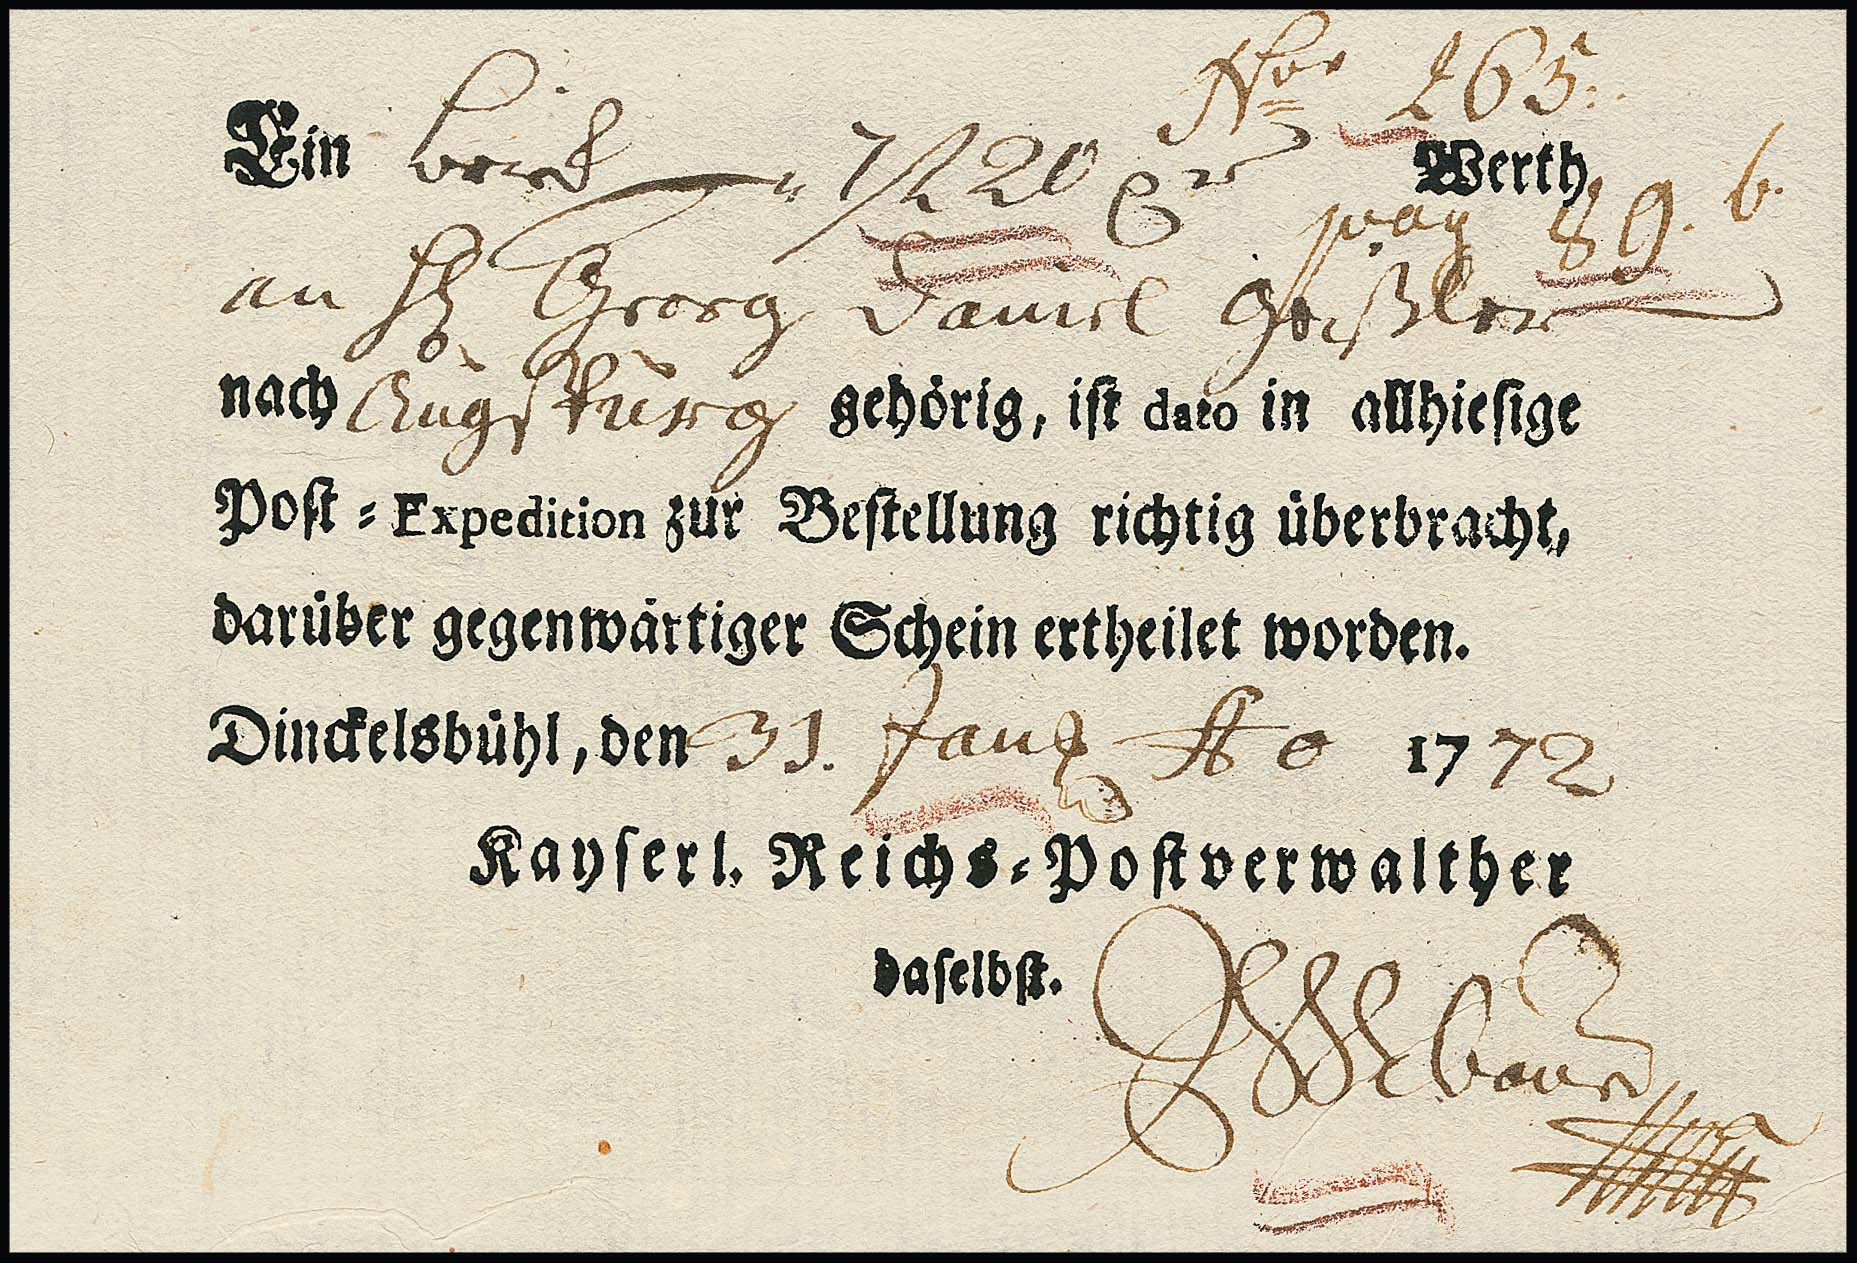 Nro 265.
Ein brief 220 Werth
pag 89. b.
an H Georg Daniel Geißler
nach Augspurg gehörig, ist dato in allhiesige
Post-Expedition zur Bestellung richtig überbracht,
darüber gegenwärtiger Schein ertheilet worden.
Dinckelsbühl, den 31. Jan Ao 1772
Kayserl. Reichs-Postverwalther
daselbst.